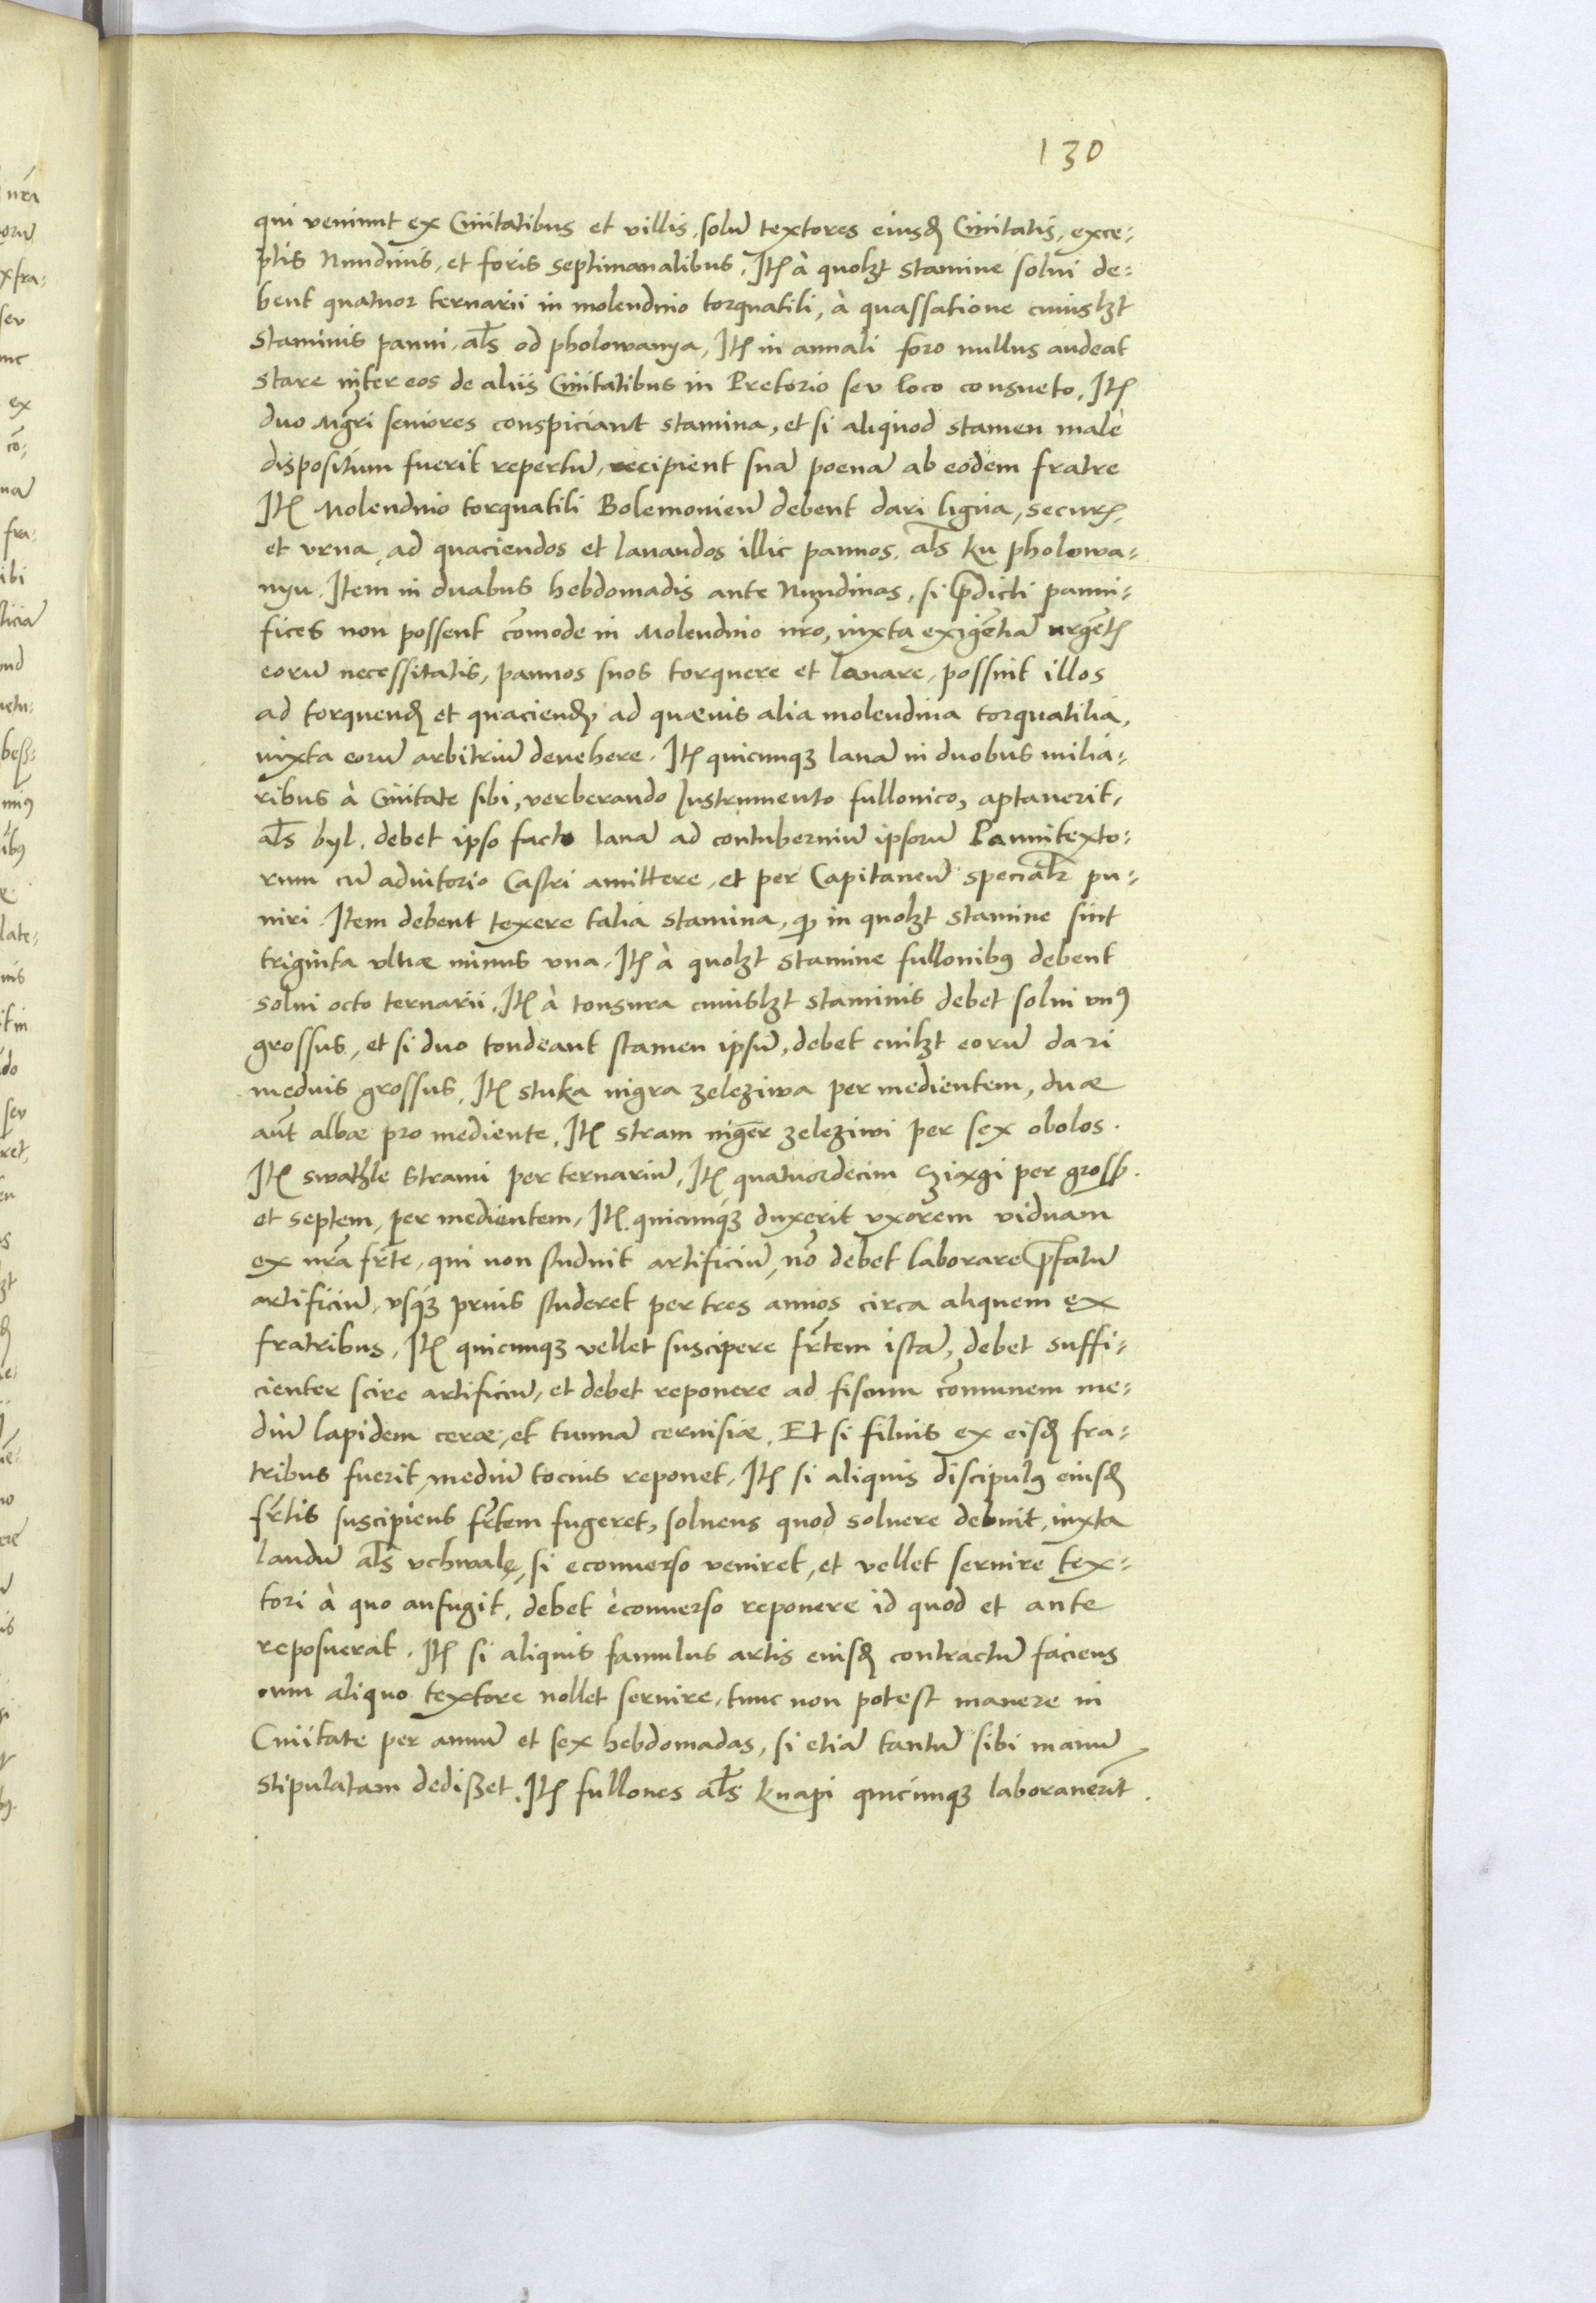 130
qui veniunt ex Ciuitatibus et villis, solū textores eiusdꝫ Ciuitatis, exce-
ptis Nundinis, et foris septimanalibus. Itꝫ à quolꝫt stamine solui de-
bent quatuor ternarii in molendino torquatili, à quassatione cuiuslꝫt
staminis panni, als̄ od pholowanya, Itꝫ in annali foro nullus audeat
stare inter eos de aliis Ciuitatibus in Pretorio seu loco consueto. Itꝫ
duo Mgr̄i seniores conspiciant stamina, et si aliquod stamen malè
dispositum fuerit repertū, recipient suā poenā ab eodem fratre
Itꝫ Molendino torquatili Bolemonien̄ debent dari ligna, securꝫ,
et vrna, ad quaciendos et lauandos illic pannos, als̄ ku pholowa-
nyu. Item in duabus hebdomadis ante Nundinas, si p̄dicti panni-
fices non possent cōmode in Molendino nr̄o, iuxta exigētiā urgētꝫ
eorū necessitatis, pannos suos torquere et lauare, possint illos
ad torquendꝫ et quaciendꝫ, ad quæuis alia molendina torquatilia,
iuxta eorū arbitriū deuehere. Itꝫ quicunqꝫ lanā in duobus milia-
ribus à Ciuitate sibi, verberando Instrumento fullonico, aptauerit,
als̄ byl, debet ipso facto lanā ad contuberniū ipsorū Pannitexto-
rum cū adiutorio Castri amittere, et per Capitaneū specialr̄ pu-
niri. Item debent texere talia stamina, qꝫ in quolꝫt stamine sint
triginta vlnæ minus vna. Itꝫ à quolꝫt stamine fullonibꝰ debent
solui octo ternarii. Itꝫ à tonsura cuiuslꝫt staminis debet solui vnꝰ
grossus, et si duo tondeant stamen ipsū, debet cuilꝫt eorū dari
medius grossus, Itꝫ stuka nigra zeleziwa per medientem, duæ
aūt albæ pro mediente, Itꝫ stram nigēr zeleziwi per sex obolos.
Itꝫ swathle strami per ternariū, Itꝫ quatuordecim per gross.
et septem, per medientem, Itꝫ quicunqꝫ duxerit vxorem viduam
ex nr̄a fr̄te, qui non studuit artificiū, nō debet laborare p̄fatū
artificiū, vsqꝫ prius studeret per tres annos circa aliquem ex
fratribus, Itꝫ quicunqꝫ vellet suscipere fr̄tem istā, debet suffi-
cienter scire artificiū, et debet reponere ad fiscum cōmunem me-
diū lapidem ceræ, et tunnā ceruisiæ. Et si filius ex eisdꝫ fra-
tribus fuerit, mediū tocius reponet, Itꝫ si aliquis discipulꝰ eiusdꝫ
fr̄tis suscipiens fr̄tem fugeret, soluens quod soluere debuit, iuxta
laudū als̄ vchwalę, si econuerso veniret, et vellet seruire tex-
tori à quo aufugit, debet èconuerso reponere id quod et ante
reposuerat. Itꝫ si aliquis famulus artis eiusdꝫ contractū faciens
cum aliquo textore nollet seruire, tunc non potest manere in
Ciuitate per annū et sex hebdomadas, si etiā tantū sibi manū
stipulatam dedißet. Itꝫ fullones als̄ knapi quicunqꝫ laborauerīt.